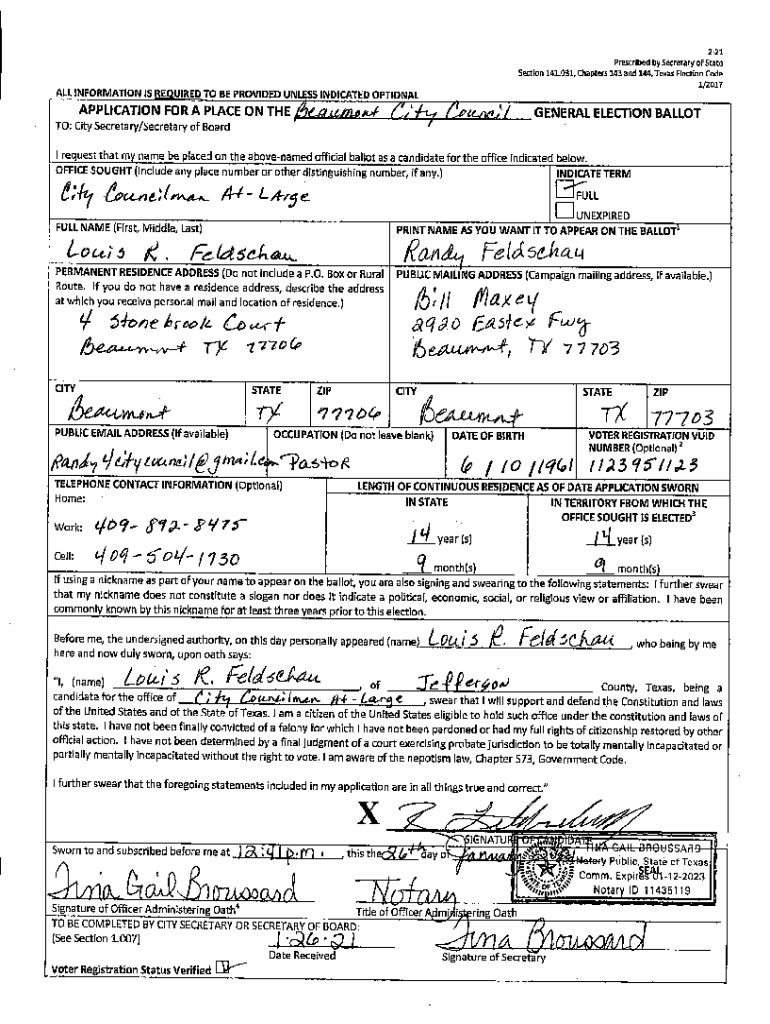 2-21
Prescribed by Secretary of State
Section 141.031, Chapters 143 and 144, Texas Election Code
1/2017
ALL INFORMATION IS REQUIRED TO BE PROVIDED UNLESS INDICATED OPTIONAL
APPLICATION FOR A PLACE ON THE Beaumont City Council GENERAL ELECTION BALLOT
TO: City Secretary/Secretary of Board
I request that my name be placed on the above-named official ballot as a candidate for the office indicated below.
OFFICE SOUGHT (Include any place number or other distinguishing number, if any.) INDICATE TERM
City Councilman At-Large
FULL
UNEXPIRED
FULL NAME (First, Middle, Last) PRINT NAME AS YOU WANT IT TO APPEAR ON THE BALLOT1
Louis R. Feldschau Randy Feldschau
PERMANENT RESIDENCE ADDRESS (Do not include a P.O. Box or Rural PUBLIC MAILING ADDRESS (Campaign mailing address, if available.)
Route. If you do not have a residence address, describe the address
at which you receive personal mail and location of residence.) Bill Maxey
4 Stonebrook Court 2920 Eastex Fwy
Beaumont TX 77706 Beaumont, TX 77703
CITY STATE ZIP CITY STATE ZIP
Beaumont TX 77706 Beaumont TX 77703
PUBLIC EMAIL ADDRESS (If available) OCCUPATION (Do not leave blank) DATE OF BIRTH VOTER REGISTRATION VUID
NUMBER (Optional) 2
Randy4citycouncil@gmail.com Pastor 6/10/1961 1123951123
TELEPHONE CONTACT INFORMATION (Optional) LENGTH OF CONTINUOUS RESIDENCE AS OF DATE APPLICATION SWORN
Home: IN STATE IN TERRITORY FROM WHICH THE
OFFICE SOUGHT IS ELECTED3
Work: 409-892-8475 14 year(s) 14 year(s)
Cell: 409-504-1730 9 month(s) 9 month(s)
If using a nickname as part of your name to appear on the ballot, you are also signing and swearing to the following statements: I further swear
that my nickname does not constitute a slogan nor does it indicate a political, economic, social, or religious view or affiliation. I have been
commonly known by this nickname for at least three years prior to this election.
Before me, the undersigned authority, on this day personally appeared (name) Louis R. Feldschau, who being by me
here and now duly sworn, upon oath says:
"I, (name) Louis R. Feldschau, of Jefferson County, Texas, being a
candidate for the office of City Councilman At-Large, swear that I will support and defend the Constitution and laws
of the United States and of the State of Texas. I am a citizen of the United States eligible to hold such office under the constitution and laws of
this state. I have not been finally convicted of a felony for which I have not been pardoned or had my full rights of citizenship restored by other
official action. I have not been determined by a final judgment of a court exercising probate jurisdiction to be totally mentally incapacitated or
partially mentally incapacitated without the right to vote. I am aware of the nepotism law, Chapter 573, Government Code.
I further swear that the foregoing statements included in my application are in all things true and correct."
X R Feldschau
SIGNATURE OF CANDIDATE
TINA GAIL BROUSSARD
Notary Public, State of Texas
SEAL
Comm. Expires 01-12-2023
Notary ID 11435119
Sworn to and subscribed before me at 12:41 p.m., this the 26th day of January
Tina Gail Broussard Notary
Signature of Officer Administering Oath4 Title of Officer Administering Oath
TO BE COMPLETED BY CITY SECRETARY OR SECRETARY OF BOARD:
(See Section 1.007) 1-26-21 Tina Broussard
Date Received Signature of Secretary
Voter Registration Status Verified